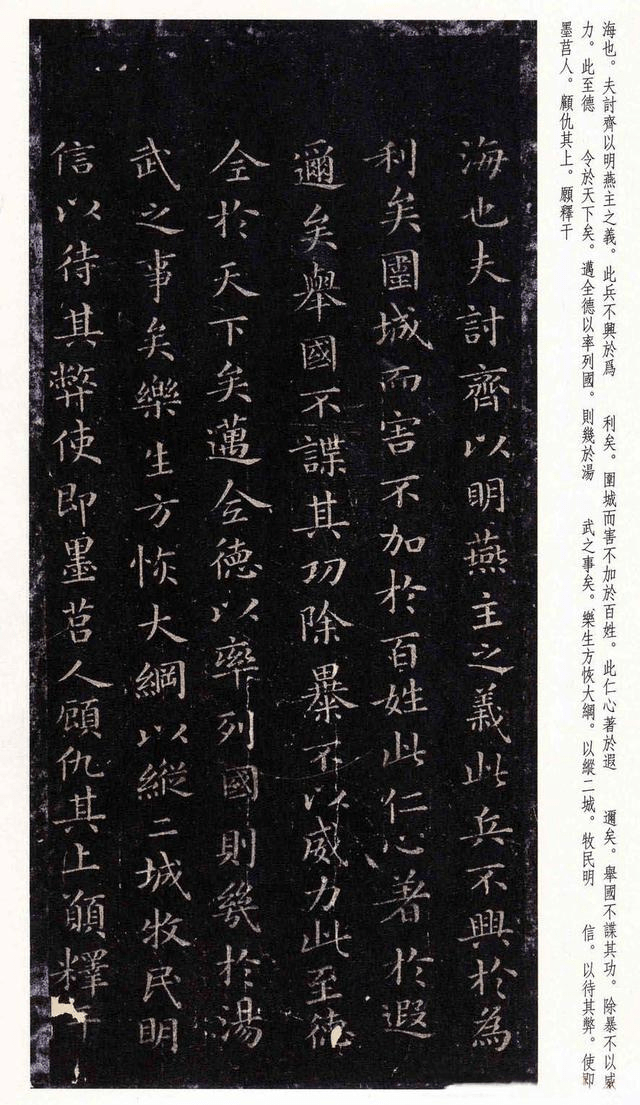 海也。夫討齊以明燕主之義。此兵不興於爲 利矣。圍城而害不加於百姓。此仁心著於遐 邇矣。舉國不諜其功。除暴不以威
力。此至德 令於天下矣。邁全德以率列國。則幾於湯 武之事矣。樂生方恢大綱。以縱二城。牧民明 信。以待其弊。使即
墨莒人。顧仇其上。願釋干
海也夫討齊以明燕主之義此兵不興於為
利矣圍城而害不加於百姓此仁心著於遐
邇矣舉國不諜其功除暴不以威力此至德
全於天下矣邁全德以率列國則幾於湯
武之事矣樂生方恢大綱以縱二城牧民明
信以待其弊使即墨莒人顧仇其上願釋干